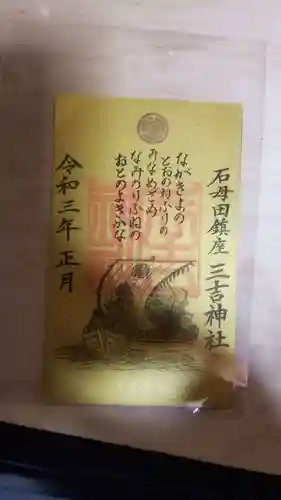 石母田鎮座 三吉神社
ながきよの
とおの祢ふりの
みなめざめ
なみのりふねの
おとのよきかな
令和三年 正月